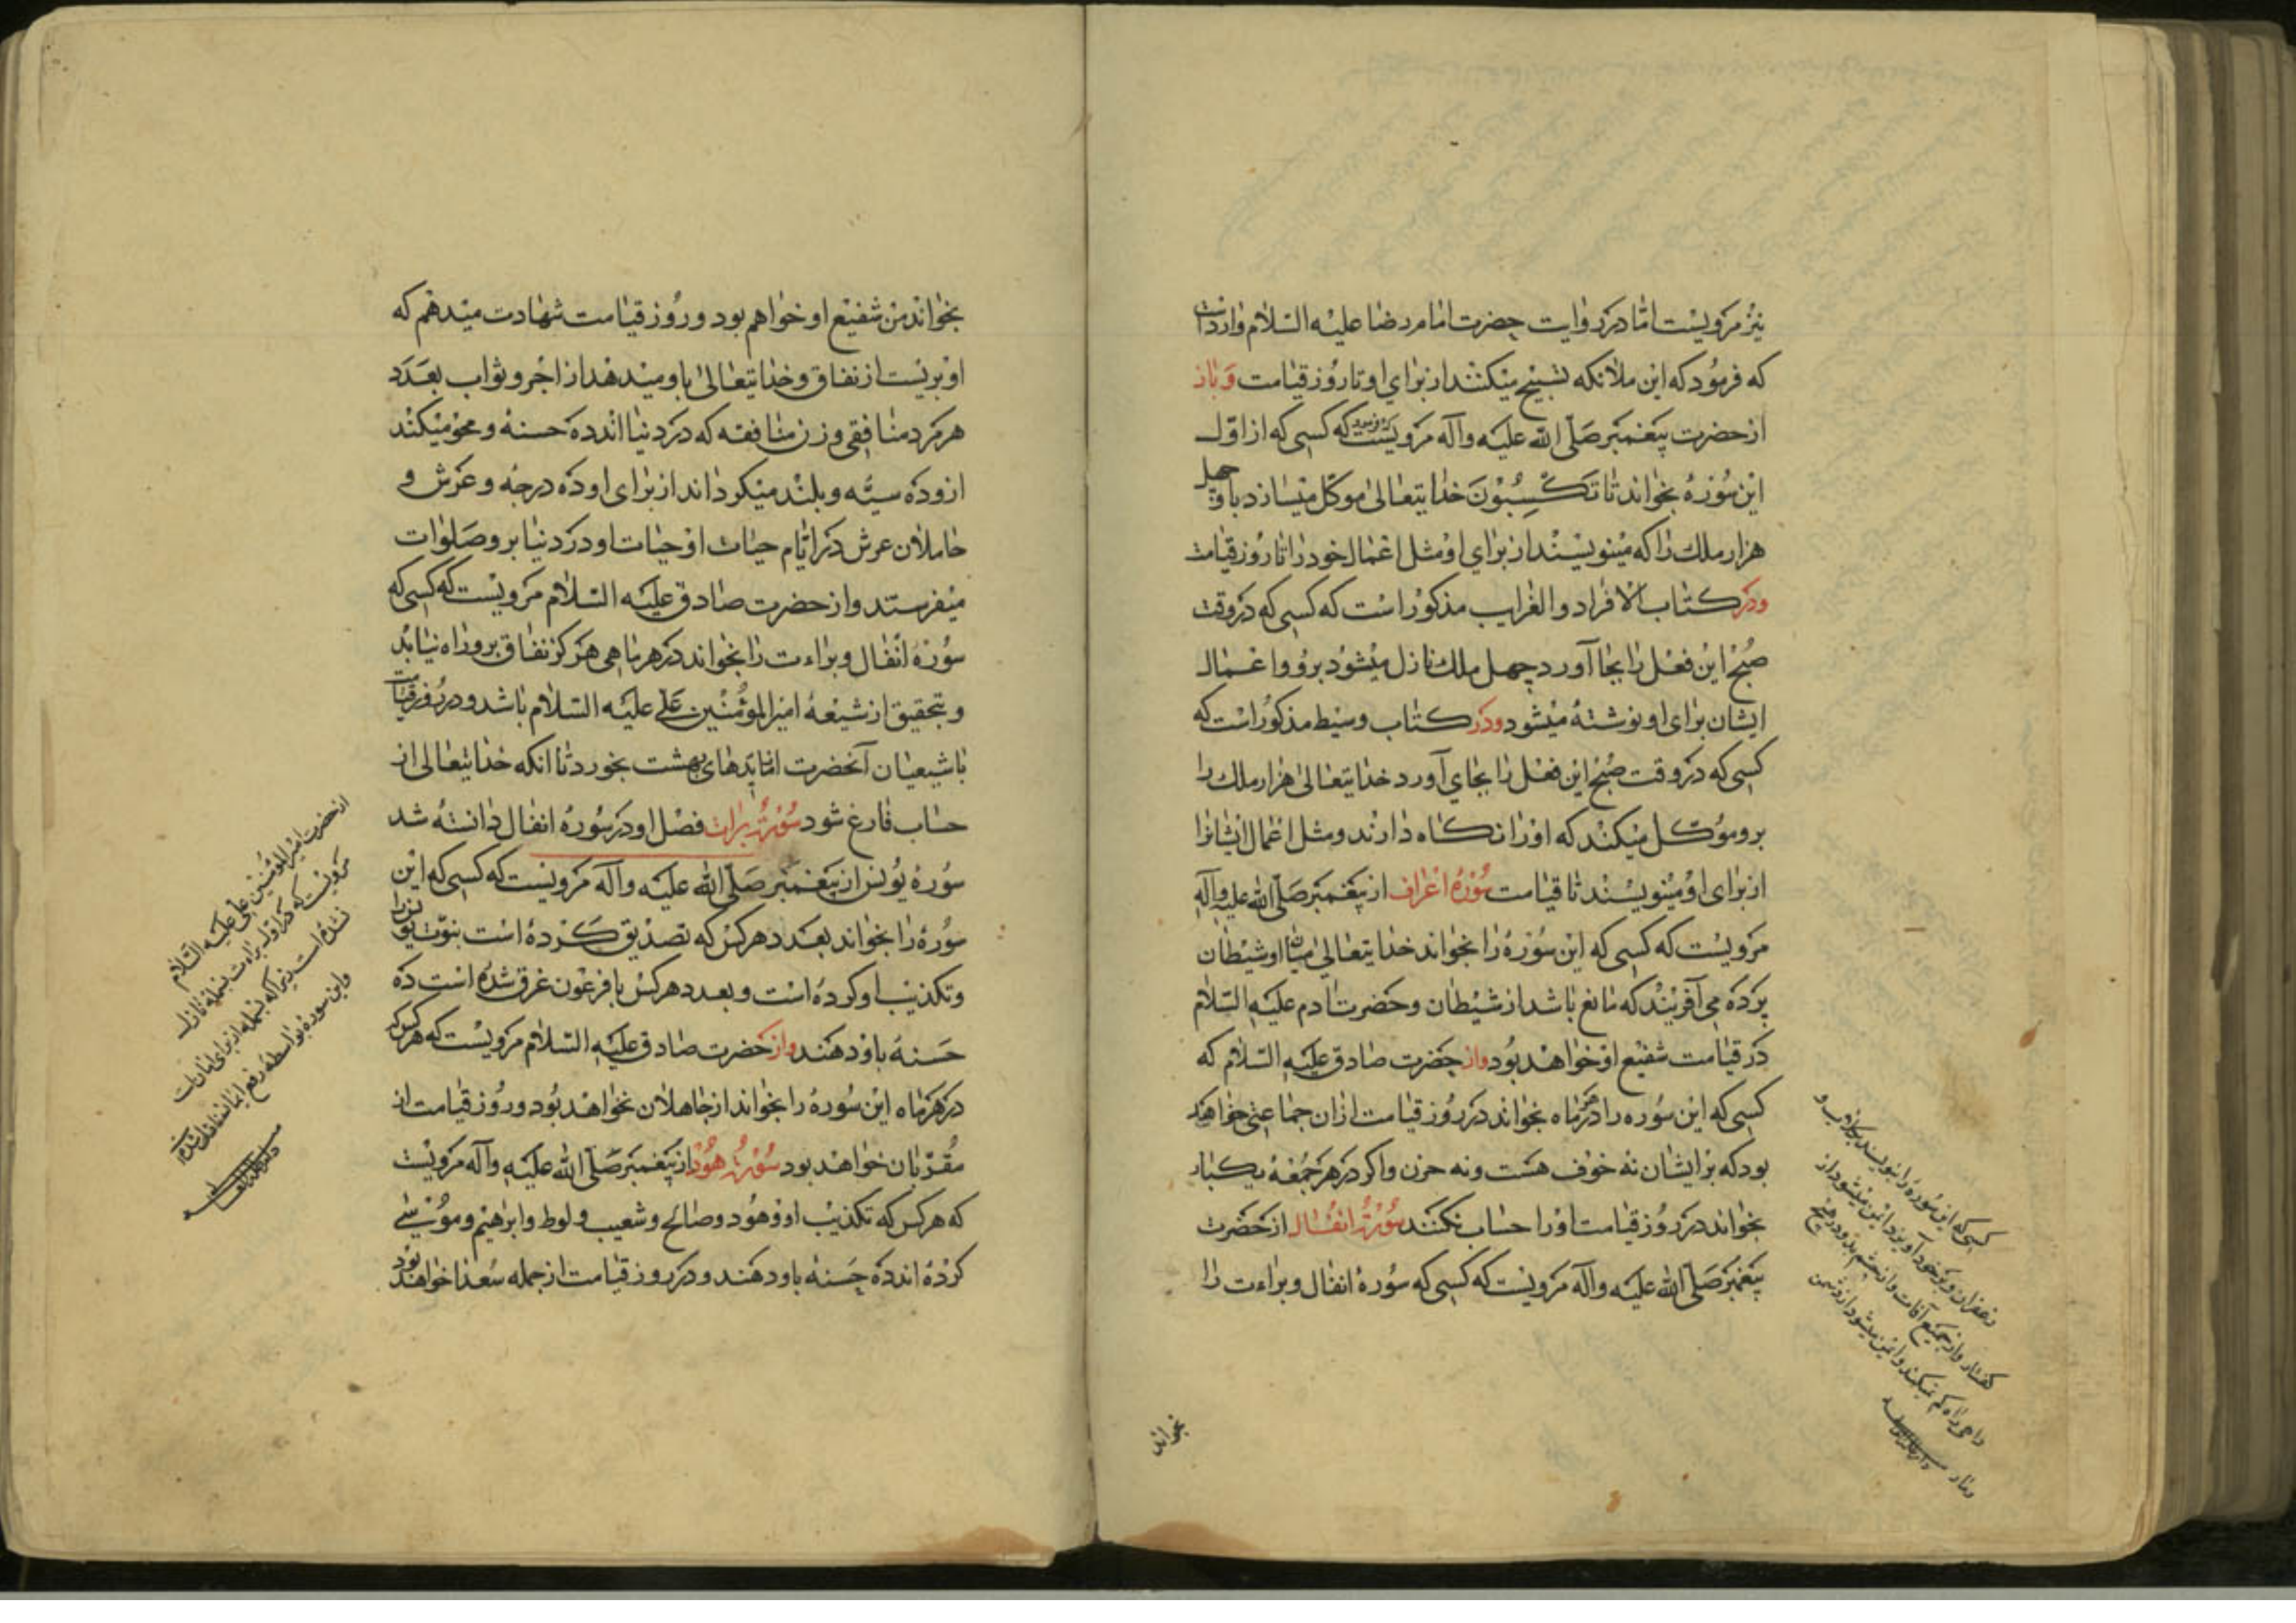 نیز مرویست امّا در روایت حضرت امام رضا علیه السّلام وارد است
که فرمود که این ملائکه تسبیح میکنند از برای او تا روز قیامت و باز
از حضرت پیغمبر صلّی الله علیه وآله مرویست که کسی که از اوّل
این سوره بخواند تا تکسبون خدایتعالی موکّل میسازد باو چهل
هزار ملک را که مینویسند از برای او مثل اعمال خود را تا روز قیامت
ودر کتاب الافراد والغرایب مذکور است که کسی که در وقت
صبح این فعل را بجا آورد چهل ملک نازل میشود برو و اعمال
ایشان برای او نوشته میشود ودر کتاب وسیط مذکور است که
کسی که در وقت صبح این فعل را بجای آورد خدایتعالی هزار ملک را
برو موکّل میکند که او را نکاه دارند ومثل اعمال ایشانرا
از برای او مینویسند تا قیامت سوره اعراف از پیغمبر صلّی الله علیه وآله
مرویست که کسی که این سوره را بخواند خدایتعالی میان او شیطان
پرده می آفریند که مانع باشد از شیطان وحضرت آدم علیه السّلام
در قیامت شفیع او خواهد بود واز حضرت صادق علیه السّلام که
کسی که این سوره را در هر ماه بخواند در روز قیامت ازان جماعتی خواهد
بود که بر ایشان نه خوف هست ونه حزن واکر در هر جمعه یکبار
بخواند در روز قیامت او را حساب نکنند سورهٔ انفال از حضرت
پیغمبر صلّی الله علیه وآله مرویست که کسی که سورهٔ انفال وبراءت را
کسی که این سوره را بنویسد بکلاب و
زعفران وبر خود آویزد ایمن میشود از
کفتار واز جمیع آفات واز چشم بد ودر هیچ
راهی راه کم نمیکند وایمن میشود از دشمن
ومار
بخواند
بخواند من شفیع او خواهم بود وروز قیامت شهادت میدهم که
او بریست از نفاق وخدایتعالی باو میدهد از اجر وثواب بعدد
هر مرد منافقی وزن منافقه که در دنیا اند ده حسنه ومحو میکند
ازو ده سیّئه وبلند میکرداند از برای او ده درجه وعرش و
حاملان عرش در ایّام حیات او حیات او در دنیا برو صلوات
میفرستند واز حضرت صادق علیه السّلام مرویست که کسی که
سورهٔ انفال وبراءت را بخواند در هر ماهی هرکز نفاق برو راه نیابد
وبتحقیق از شیعهٔ امیر المؤمنین علی علیه السّلام باشد ودر روز قیامت
با شیعیان آنحضرت از مایدهای بهشت بخورد تا انکه خدایتعالی از
حساب فارغ شود سورهٔ برات فضل او در سورهٔ انفال دانسته شد
سورهٔ یونس از پیغمبر صلّی الله علیه وآله مرویست که کسی که این
سوره را بخواند بعدد هر کس که تصدیق کرده است بنوّت یونس را
وتکذیب او کرده است وبعدد هر کس با فرعون غرق شده است ده
حسنه باو دهند واز حضرت صادق علیه السّلام مرویست که هر کس که
در هر ماه این سوره را بخواند از جاهلان نخواهد بود وروز قیامت از
مقرّبان خواهد بود سورهٔ هود از پیغمبر صلّی الله علیه وآله مرویست
که هر کس که تکذیب او وهود وصالح وشعیب ولوط وابراهیم وموسی
کرده اند ده حسنه باو دهند ودر روز قیامت از جمله سعدا خواهد بود
از حضرت امیر المؤمنین علی علیه السّلام
مرویست که در اوّل براءت بسمله نازل
نشده است زیرا که بسمله از برای امان است
واین سوره بواسطهٔ رفع امان نازل شده